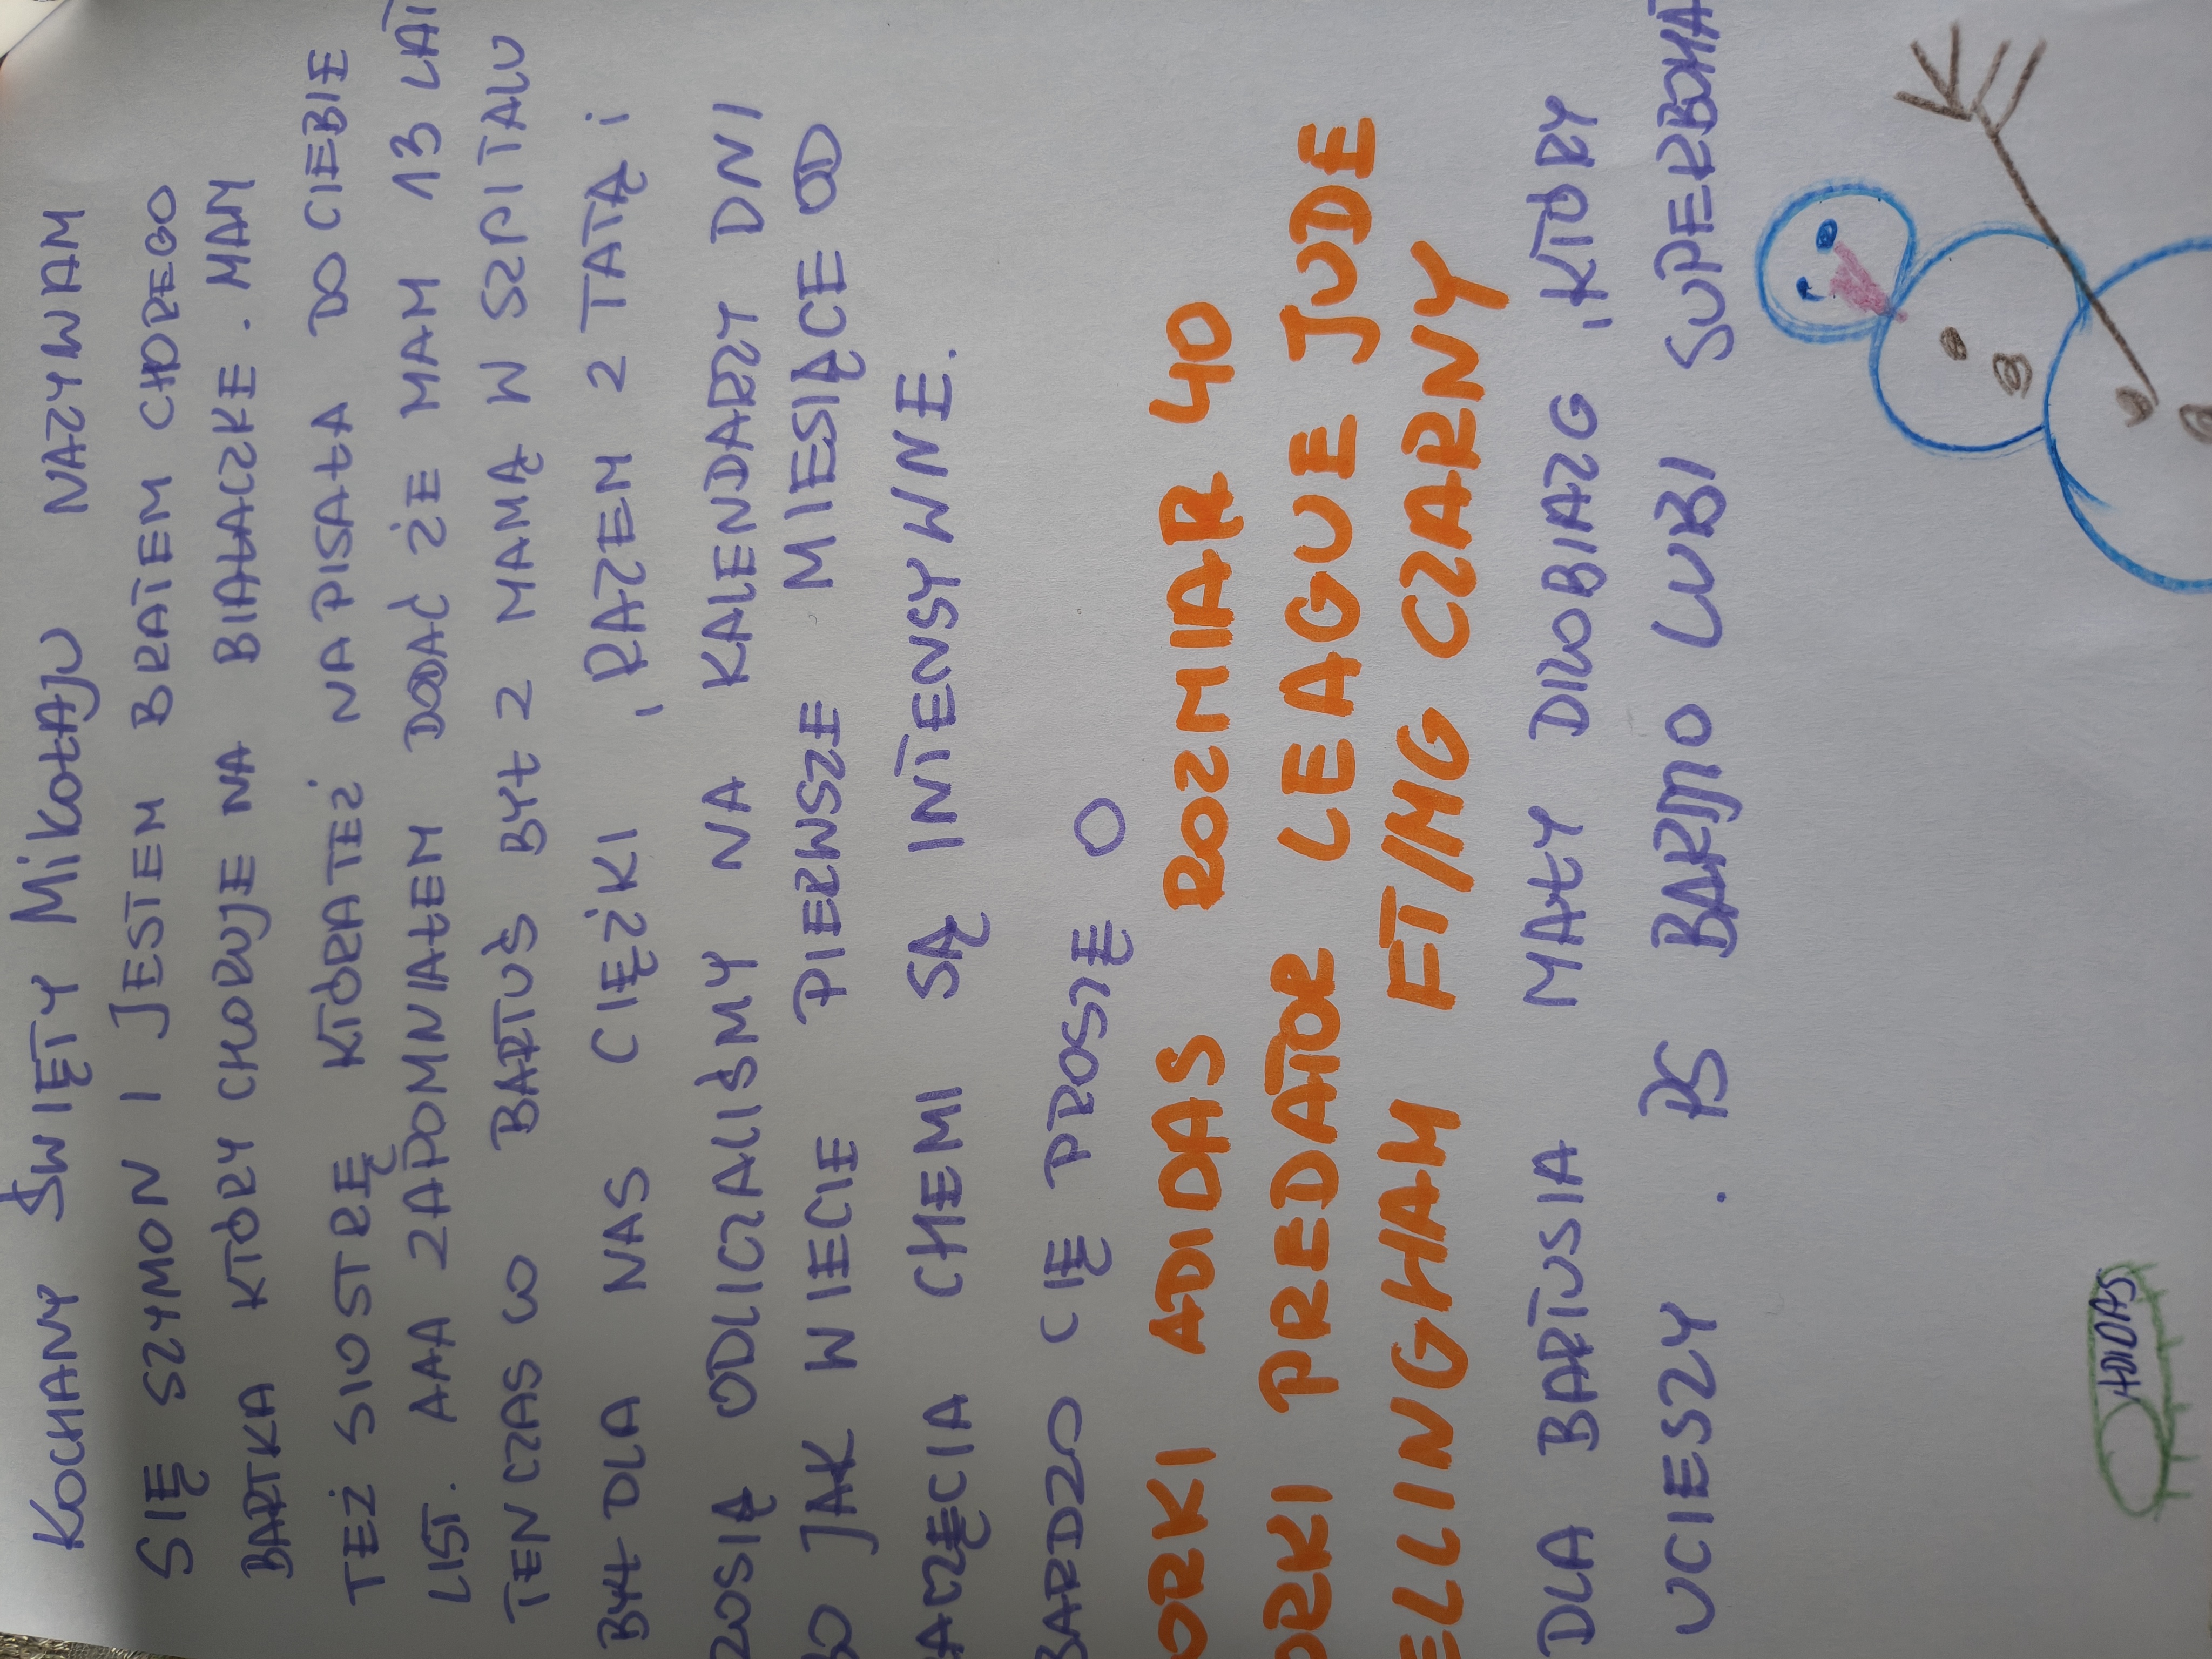 KOCHANY ŚWIĘTY MikoŁAJU NAZYWAM
SIĘ SZYMON I JESTEM BRATEM CHOREGO
BARTKA KTÓRY CHORUJE NA BIAŁACZKE. MAM
TEŻ SIOSTRĘ KTÓRA TEŻ NAPISAŁA DO CIEBIE
LIST. AAA ZAPOMNIAŁEM DODAĆ ŻE MAM 13 LAT
TEN CZAS CO BARTUŚ BYŁ Z MAMĄ W SZPITALU
BYŁ DLA NAS CIĘŻKI, RAZEM Z TATĄ i
ZOSIĄ ODLICZALIŚMY NA KALENDARZY DNI
BO JAK WIECIE PIERWSZE MIESIĄCE OD
CHEMI SĄ INTENSYWNE.
BARDZO CIĘ PROSZĘ O
ORKI ADIDAS ROZMIAR 40
ORKI PREDATOR LEAGUE JUDE
ELLINGHAM FT/MG CZARNY
DLA BARTUSIA MAŁY DROBIAZG, KTÓRY
UCIESZY. SK BARDZO LUBI SUPERBOHATE
ADIDAS